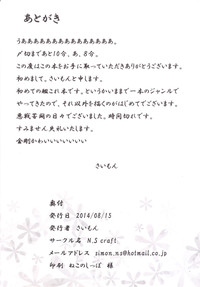 あとがき
うあああああああああああああああ。
〆切まであと10分、あ、8分。
この度はこの本をお手に取っていただきありがとうございます。
初めまして、さいもんと申します。
初めての艦これ本です。というかいままで一本のジャンルで
やってきたので、それ以外を描くのがはじめてでございます。
悪戦苦闘の日々でございました。時間切れです。
すみません失礼いたします。
金剛かわいいいいいいい
さいもん
奥付
発行日 2014/08/15
発行者 さいもん
サークル名 N.S craft.
メールアドレス simon_ns@hotmail.co.jp
印刷 ねこのしっぽ 様